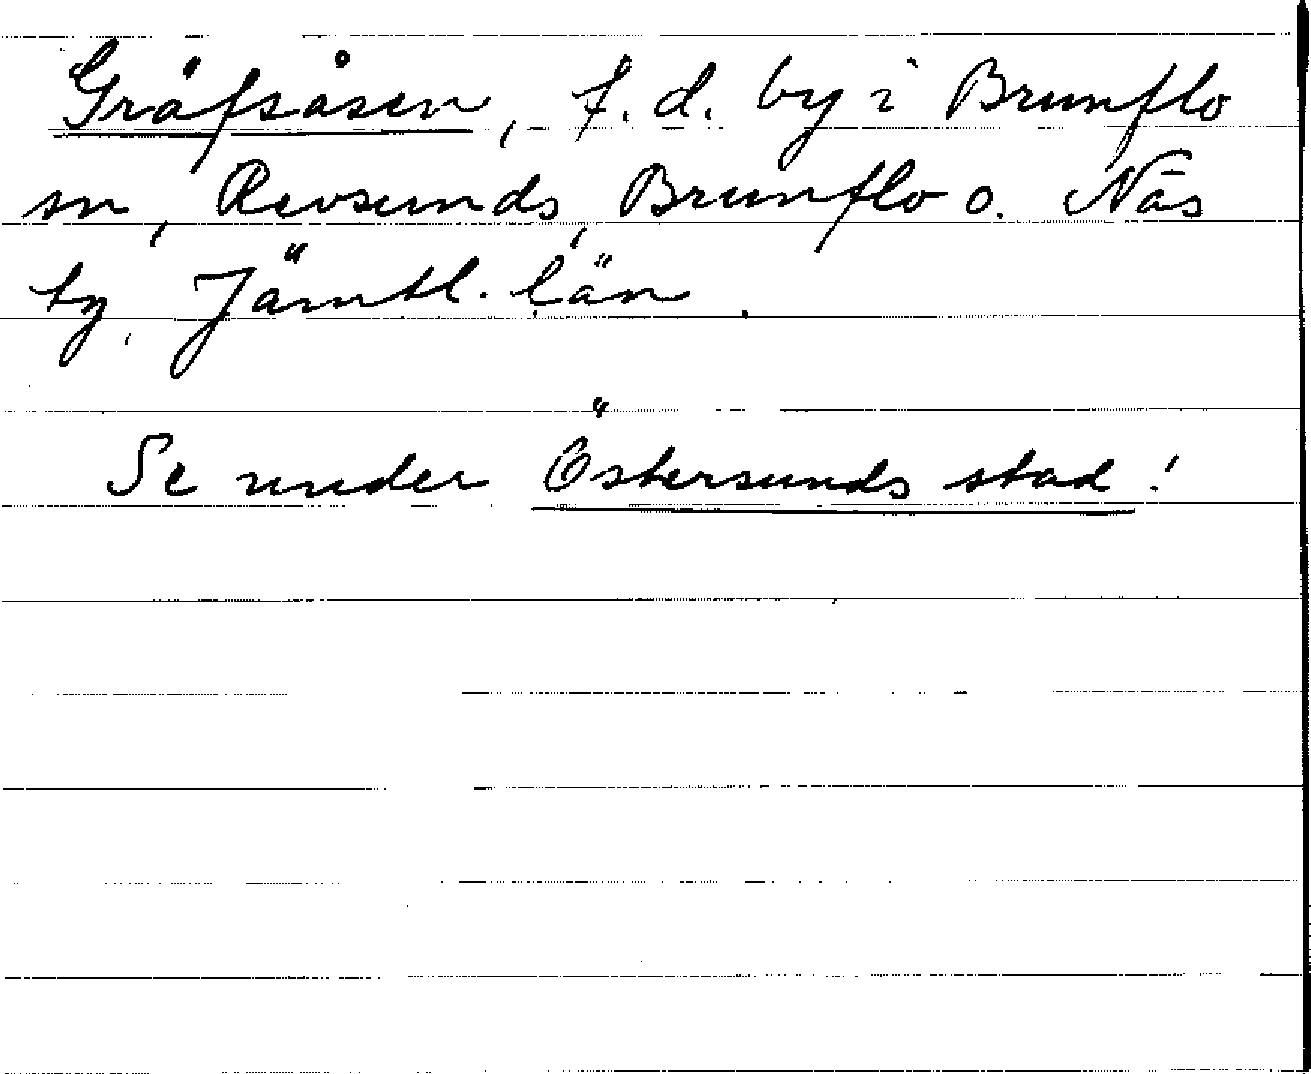 Gräfsåsen, f. d. by i Brunflo
sn, Revsunds, Brunflo o. Näs
tg, Jämtl. län.
Se under Östersunds stad!